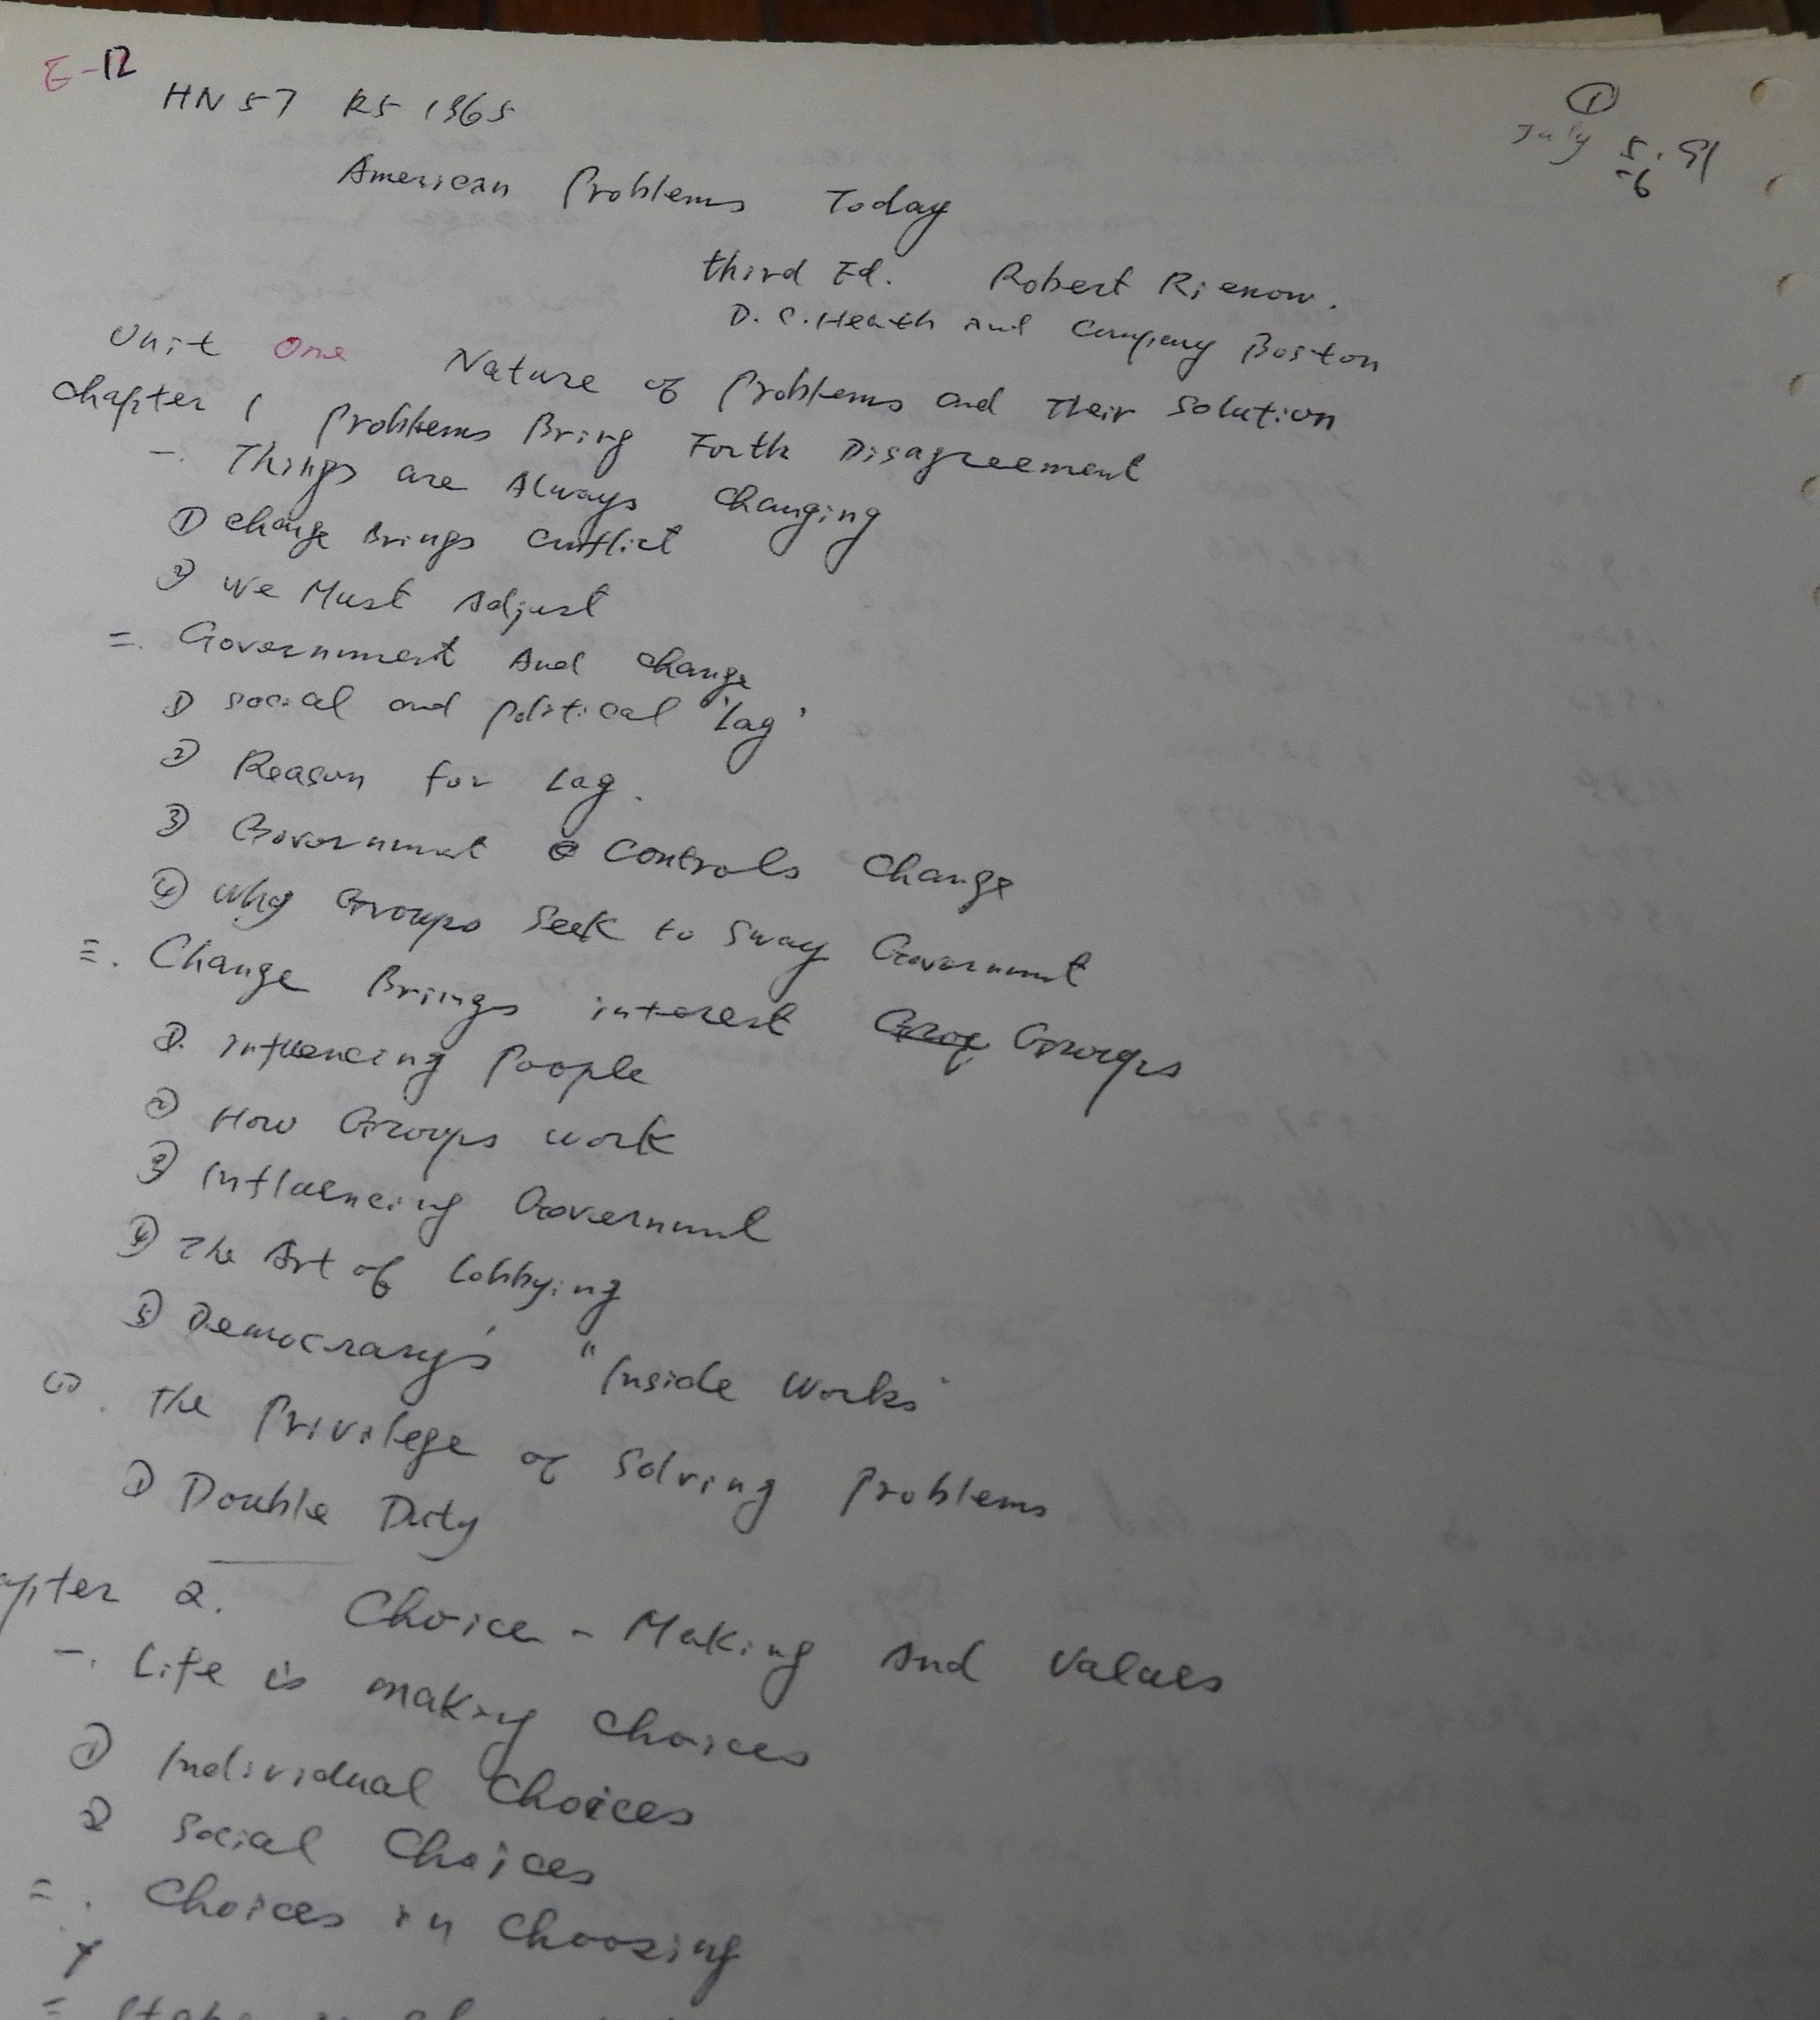 E-12
HN 57 R5 1965
①
July 5. 91
-6
American Problems Today
third Ed. Robert Rienow.
D. C. Heath and Company Boston
Unit One Nature of Problems and Their Solution
Chapter 1 Problems Bring Forth Disagreement
一. Things are Always Changing
① Change Brings Conflict
② We Must Adjust
二. Government And Change
① Social and political 'Lag'
② Reason for Lag.
③ Government Controls Change
④ Why Groups Seek to Sway Government
三. Change Brings interest Groups
① Influencing People
② How Groups work
③ Influencing Government
④ The Art of Lobbying
⑤ Democracy's "Inside Works"
四. The Privilege of Solving Problems
① Double Duty
apter 2. Choice-Making And Values
一. Life is making choices
① Individual Choices
② Social Choices
二. Choices in Choosing